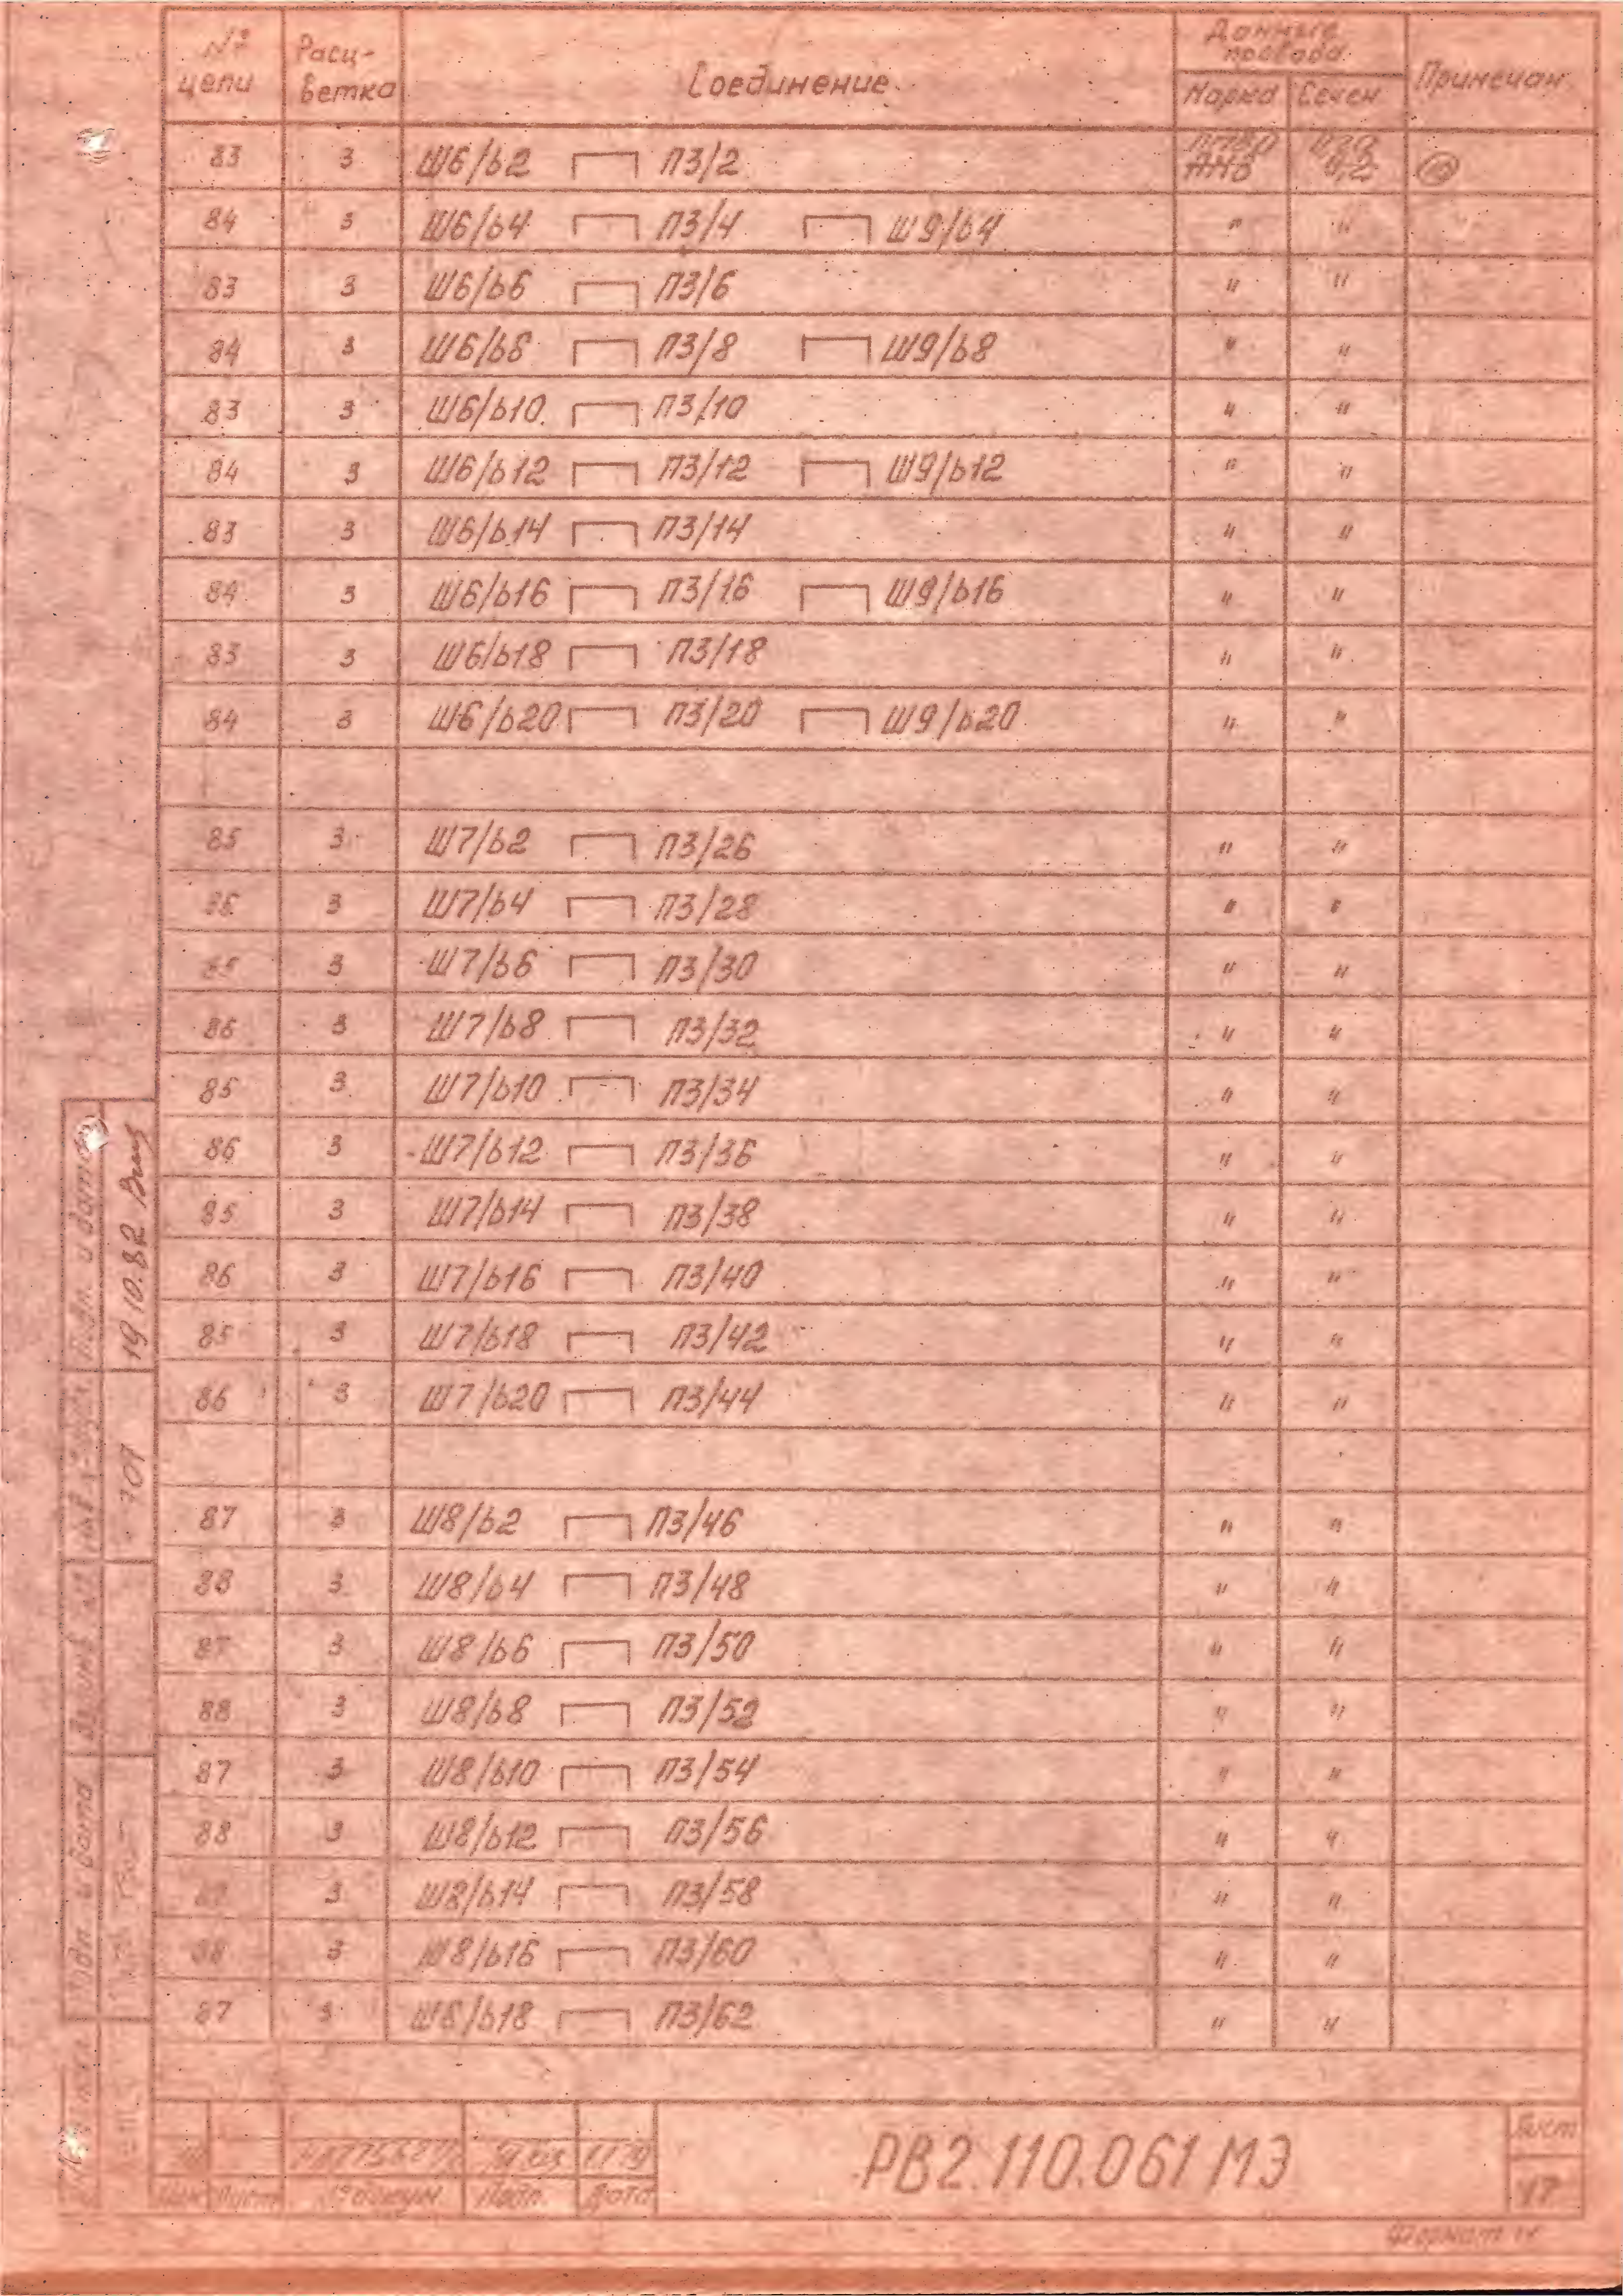 № цепи Расцветка Соединение Данные провода Примечан.
Марка Сечен
83 3 Ш6/Б2 П3/2 0,2 10
84 3 Ш6/Б4 П3/4 Ш9/Б4 " "
83 3 Ш6/Б6 П3/6 " "
84 3 Ш6/Б8 П3/8 Ш9/Б8 " "
83 3 Ш6/Б10 П3/10 " "
84 3 Ш6/Б12 П3/12 Ш9/Б12 " "
83 3 Ш6/Б14 П3/14 " "
84 3 Ш6/Б16 П3/16 Ш9/Б16 " "
83 3 Ш6/Б18 П3/18 " "
84 3 Ш6/Б20 П3/20 Ш9/Б20 " "
85 3 Ш7/Б2 П3/26 " "
86 3 Ш7/Б4 П3/28 " "
85 3 Ш7/Б6 П3/30 " "
86 3 Ш7/Б8 П3/32 " "
85 3 Ш7/Б10 П3/34 " "
86 3 Ш7/Б12 П3/36 " "
85 3 Ш7/Б14 П3/38 " "
86 3 Ш7/Б16 П3/40 " "
85 3 Ш7/Б18 П3/42 " "
86 3 Ш7/Б20 П3/44 " "
87 3 Ш8/Б2 П3/46 " "
88 3 Ш8/Б4 П3/48 " "
87 3 Ш8/Б6 П3/50 " "
88 3 Ш8/Б8 П3/52 " "
87 3 Ш8/Б10 П3/54 " "
88 3 Ш8/Б12 П3/56 " "
87 3 Ш8/Б14 П3/58 " "
88 3 Ш8/Б16 П3/60 " "
87 3 Ш8/Б18 П3/62 " "
Подп. и дата 19.10.82
701
Подп. и дата
Изм Лист № докум. Подп. Дата
РВ2.110.061 МЭ
Лист
47
Формат 11